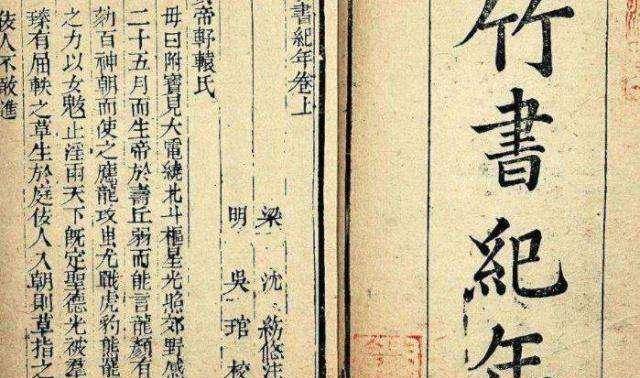 竹書紀年
書紀年卷上
梁 沈約附注
明 吳琯校
帝軒轅氏
母曰附寶見大電繞北斗樞星光照郊野感
二十五月而生帝於壽丘弱而能言龍顏有
劾百神朝而使之應龍攻蚩尤戰虎豹熊羆
之力以女魃止淫雨天下既定聖德光被羣
臻有屈軼之草生於庭佞人入朝則草指之
佞人不敢進